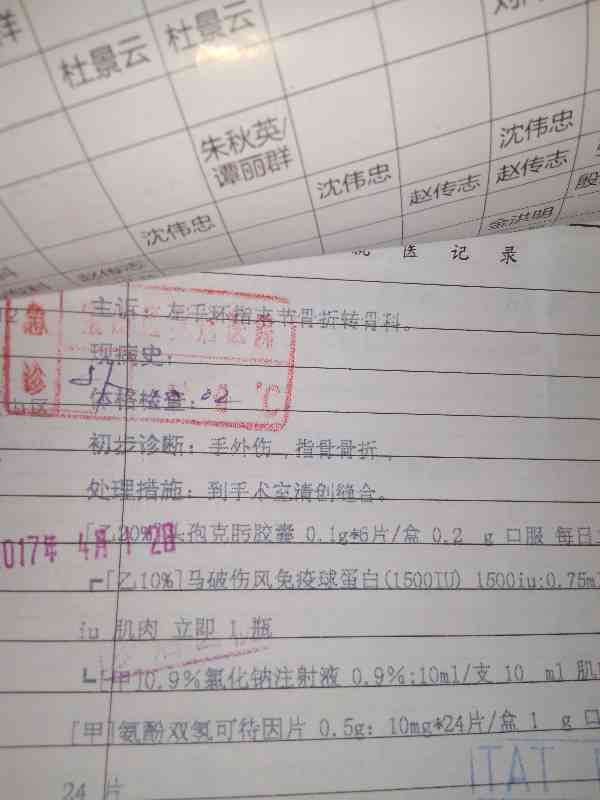 杜景云 杜景云
朱秋英/
谭丽群
沈伟忠 沈伟忠 赵传志 赵传志 沈伟忠
金洪明
医 记 录
急诊
主诉：左手环指末节骨折转骨科。
现病史：
体格检查：
℃
初步诊断：手外伤，指骨骨折，
处理措施：到手术室清创缝合。
2017年 4月 1 2日
[乙20%]头孢克肟胶囊 0.1g*6片/盒 0.2 g 口服 每日
[乙10%]马破伤风免疫球蛋白(1500IU) 1500iu:0.75m
iu 肌肉 立即 1 瓶
[甲]0.9%氯化钠注射液 0.9%:10ml/支 10 ml 肌
[甲]氨酚双氢可待因片 0.5g: 10mg*24片/盒 1 g 口
24 片
ITAT